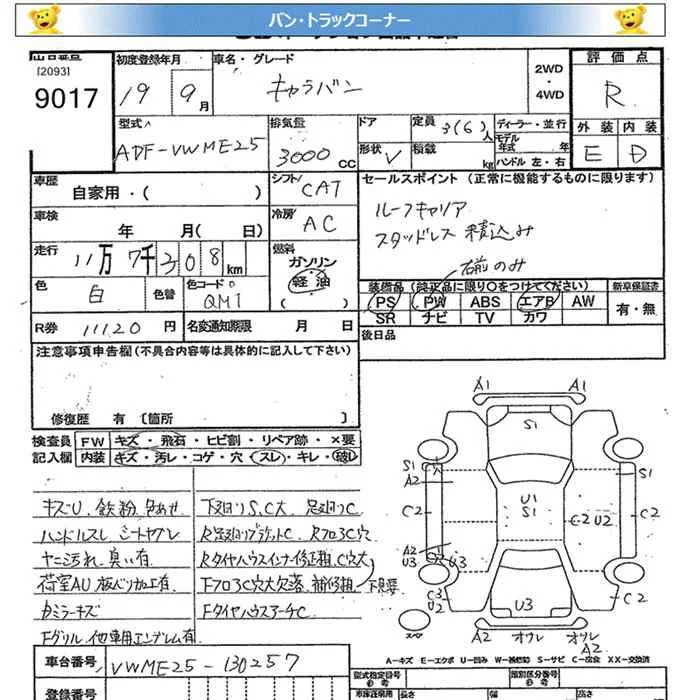 バン・トラックコーナー
出品番号 初度登録年月 車名・グレード 2WD 評価点
[2093] ・4WD
9017 19 9月 キャラバン R
型式 排気量 ドア 定員 3(6)人 ディーラー・並行 外装 内装
ADF-VWME25 3000cc 形状 V 積載 kg モデル年式 年 ハンドル 左・右 E D
車歴 自家用・( ) シフト CAT セールスポイント (正常に機能するものに限ります)
車検 年 月( 日) 冷房 AC ルーフキャリア
走行 11万7千308km 燃料 ガソリン スタッドレス積込み
軽油 ( ) 右前のみ
色 白 色替 色コード QM1 装備品 (純正品に限り○をつけてください) 新車保証書
PS PW ABS エアB AW 有・無
R券 11120円 名変通知期限 月 日 SR ナビ TV カワ
注意事項申告欄 (不具合内容等は具体的に記入して下さい) 後日品
修復歴 有 [箇所 ]
検査員 FW キズ・飛石・ヒビ割・リペア跡・×要
記入欄 内装 キズ・汚レ・コゲ・穴・スレ・キレ・破レ
キズU 鉄粉 色あせ 下回りS,C大 足回りC
ハンドルスレ シートヤブレ R足回りブラケットC Rフロア3C穴
ヤニ汚れ、臭い有 Rタイヤハウスインナー修正粗、C穴大
荷室AU 板ベリ加工有 Fフロア3C穴大欠落 補修粗 下見要
カミラーキズ FタイヤハウスアーチC
Fグリル 他車用エンブレム有
A1 A1
S1
S1 A2 S1
C2 U1 S1 C2 U2 C2
A2 U3 U3
C3 U2 U3 C2
スペア A2 オウレ オウレ A2
A-キズ E-エクボ U-凹み W-補修跡 S-サビ C-腐食 XX-交換済
車台番号 VWME25-130257 型式指定番号 類別区分番号
登録番号 長さ 幅 高さ